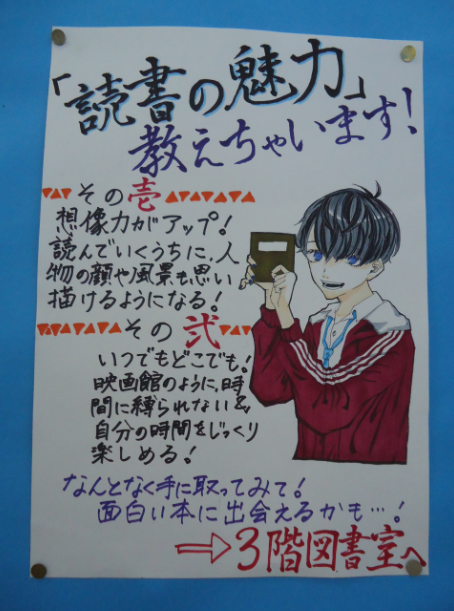 「読書の魅力」
教えちゃいます！
その壱
想像力がアップ！
読んでいくうちに、人
物の顔や風景も思い
描けるようになる！
その弐
いつでもどこでも！
映画館のように、時
間に縛られない&
自分の時間をじっくり
楽しめる！
なんとなく手に取ってみて！
面白い本に出会えるかも…！
⇨3階図書室へ